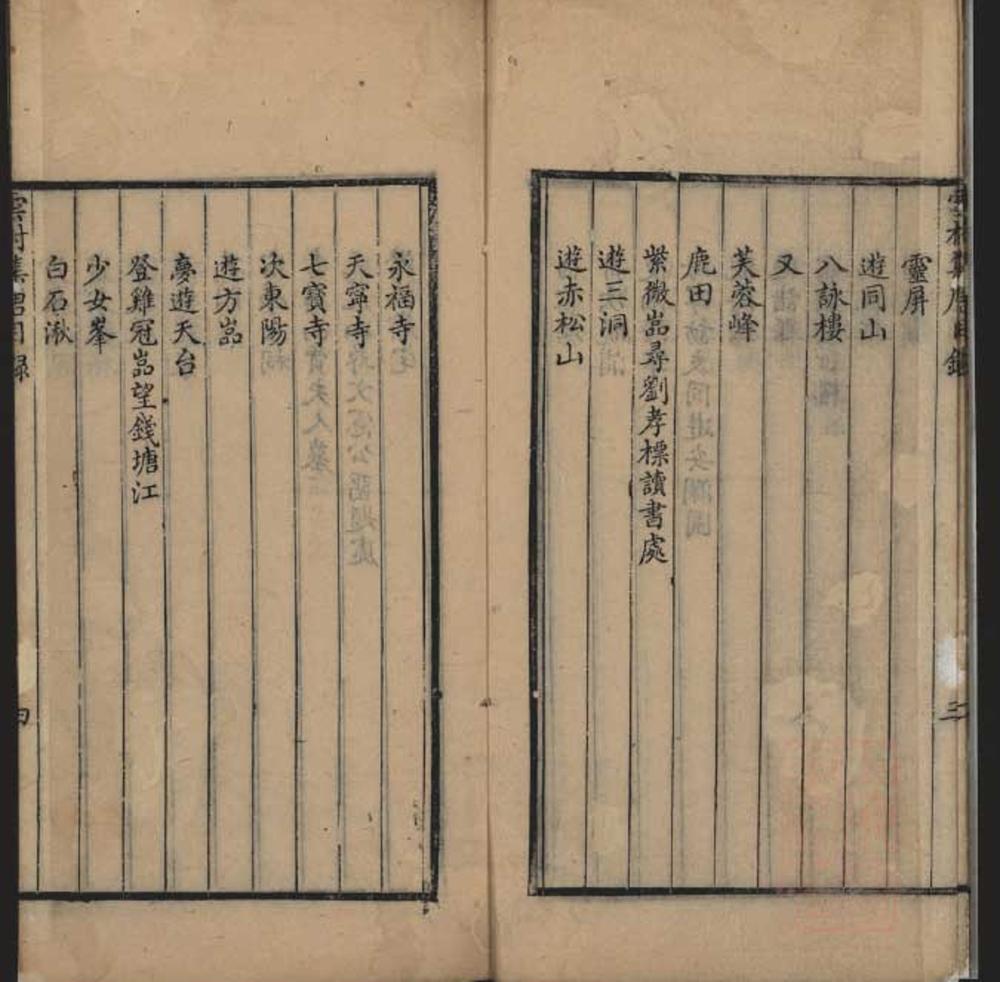 靈屏
遊同山
八詠樓
又
芙蓉峰
鹿田
紫微嵓尋劉孝標讀書處
遊三洞
遊赤松山
永福寺
天寧寺
七寶寺
次東陽
遊方嵓
夢遊天台
登雞冠嵓望錢塘江
少女峯
白石湫